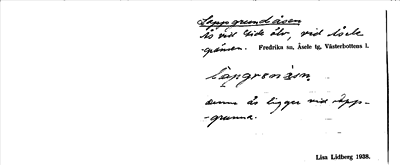 Lappgrundåsen
ås vid Lide älv, vid Åsele
gränsen. Fredrika sn, Åsele tg, Västerbottens l.
denna ås ligger vid Lapp-
grunna.
Lisa Lidberg 1938.